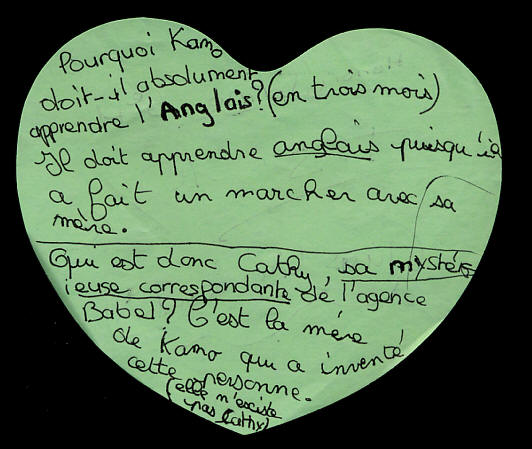 Pourquoi Kamo
doit-il absolument
apprendre l'Anglais? (en trois mois)
Il doit apprendre anglais puisqu'il
a fait un marcher avec sa
mère.
Qui est donc Cathy, sa mystér
ieuse correspondante de l'agence
Babel? C'est la mère
de Kamo qui a inventé
cette personne.
(elle n'existe
pas Cathy)